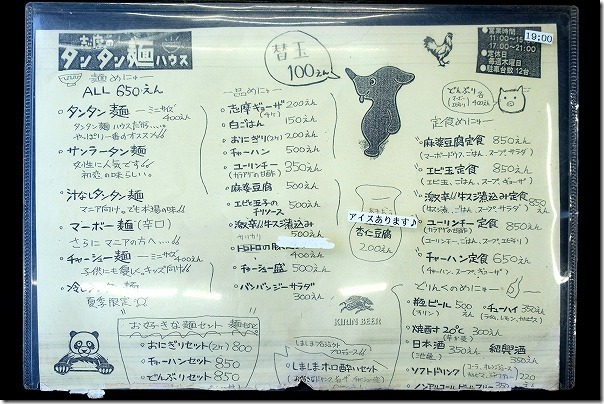 お魚の
タンタン麺ハウス
麺めにゅー
ALL 650えん
タンタン麺 ミニサイズ 400えん
タンタン麺ハウスだけに…
やっぱり一番のオススメ!!
サンラータン麺
女性に人気です!!
初恋の味らしい。
汁なしタンタン麺
マニア向け。でも本場の味!!
マーボー麺(辛口)
さらにマニアの方へ…
チャーシュー麺 ミニサイズ 400えん
子供にも優しくキッズ向け
夏季限定
替玉
100えん
一品めにゅー
志摩ギョーザ(5ケ) 200えん
白ごはん 150えん
おにぎり(2ケ) 200えん
チャーハン 500えん
ユーリンチー 350えん
(カラアゲの甘酢)
麻婆豆腐 500えん
エビと玉子の
チリソース 500えん
激辛!!牛スジ煮込み
500えん
チャーシュー盛 500えん
バンバンジーサラダ
300えん
アイスあります♪
杏仁豆腐
200えん
KIRIN BEER
●営業時間
11:00~15
17:00~21:00
19:00
●定休日
毎週木曜日
●駐車台数12台
定食めにゅー
麻婆豆腐定食 850えん
(マーボードウフ、ごはん、スープ、サラダ)
エビ玉定食 850えん
(エビ玉、ごはん、スープ、ギョーザ)
激辛!!牛スジ煮込み定食
850えん
(牛スジ、ごはん、スープ、サラダ)
ユーリンチー定食 850えん
(カラアゲの甘酢)
チャーハン定食 650えん
(チャーハン、スープ、ギョーザ)
どりんくめにゅー
瓶ビール 500えん
(キリン)
チューハイ 350えん
焼酎 20℃ 300えん
日本酒 350えん
紹興酒 350えん
ソフトドリンク
220
お好きな麺セット
おにぎりセット(2ケ) 800
チャーハンセット 850
どんぶりセット 850
しましまホロ酔いセット